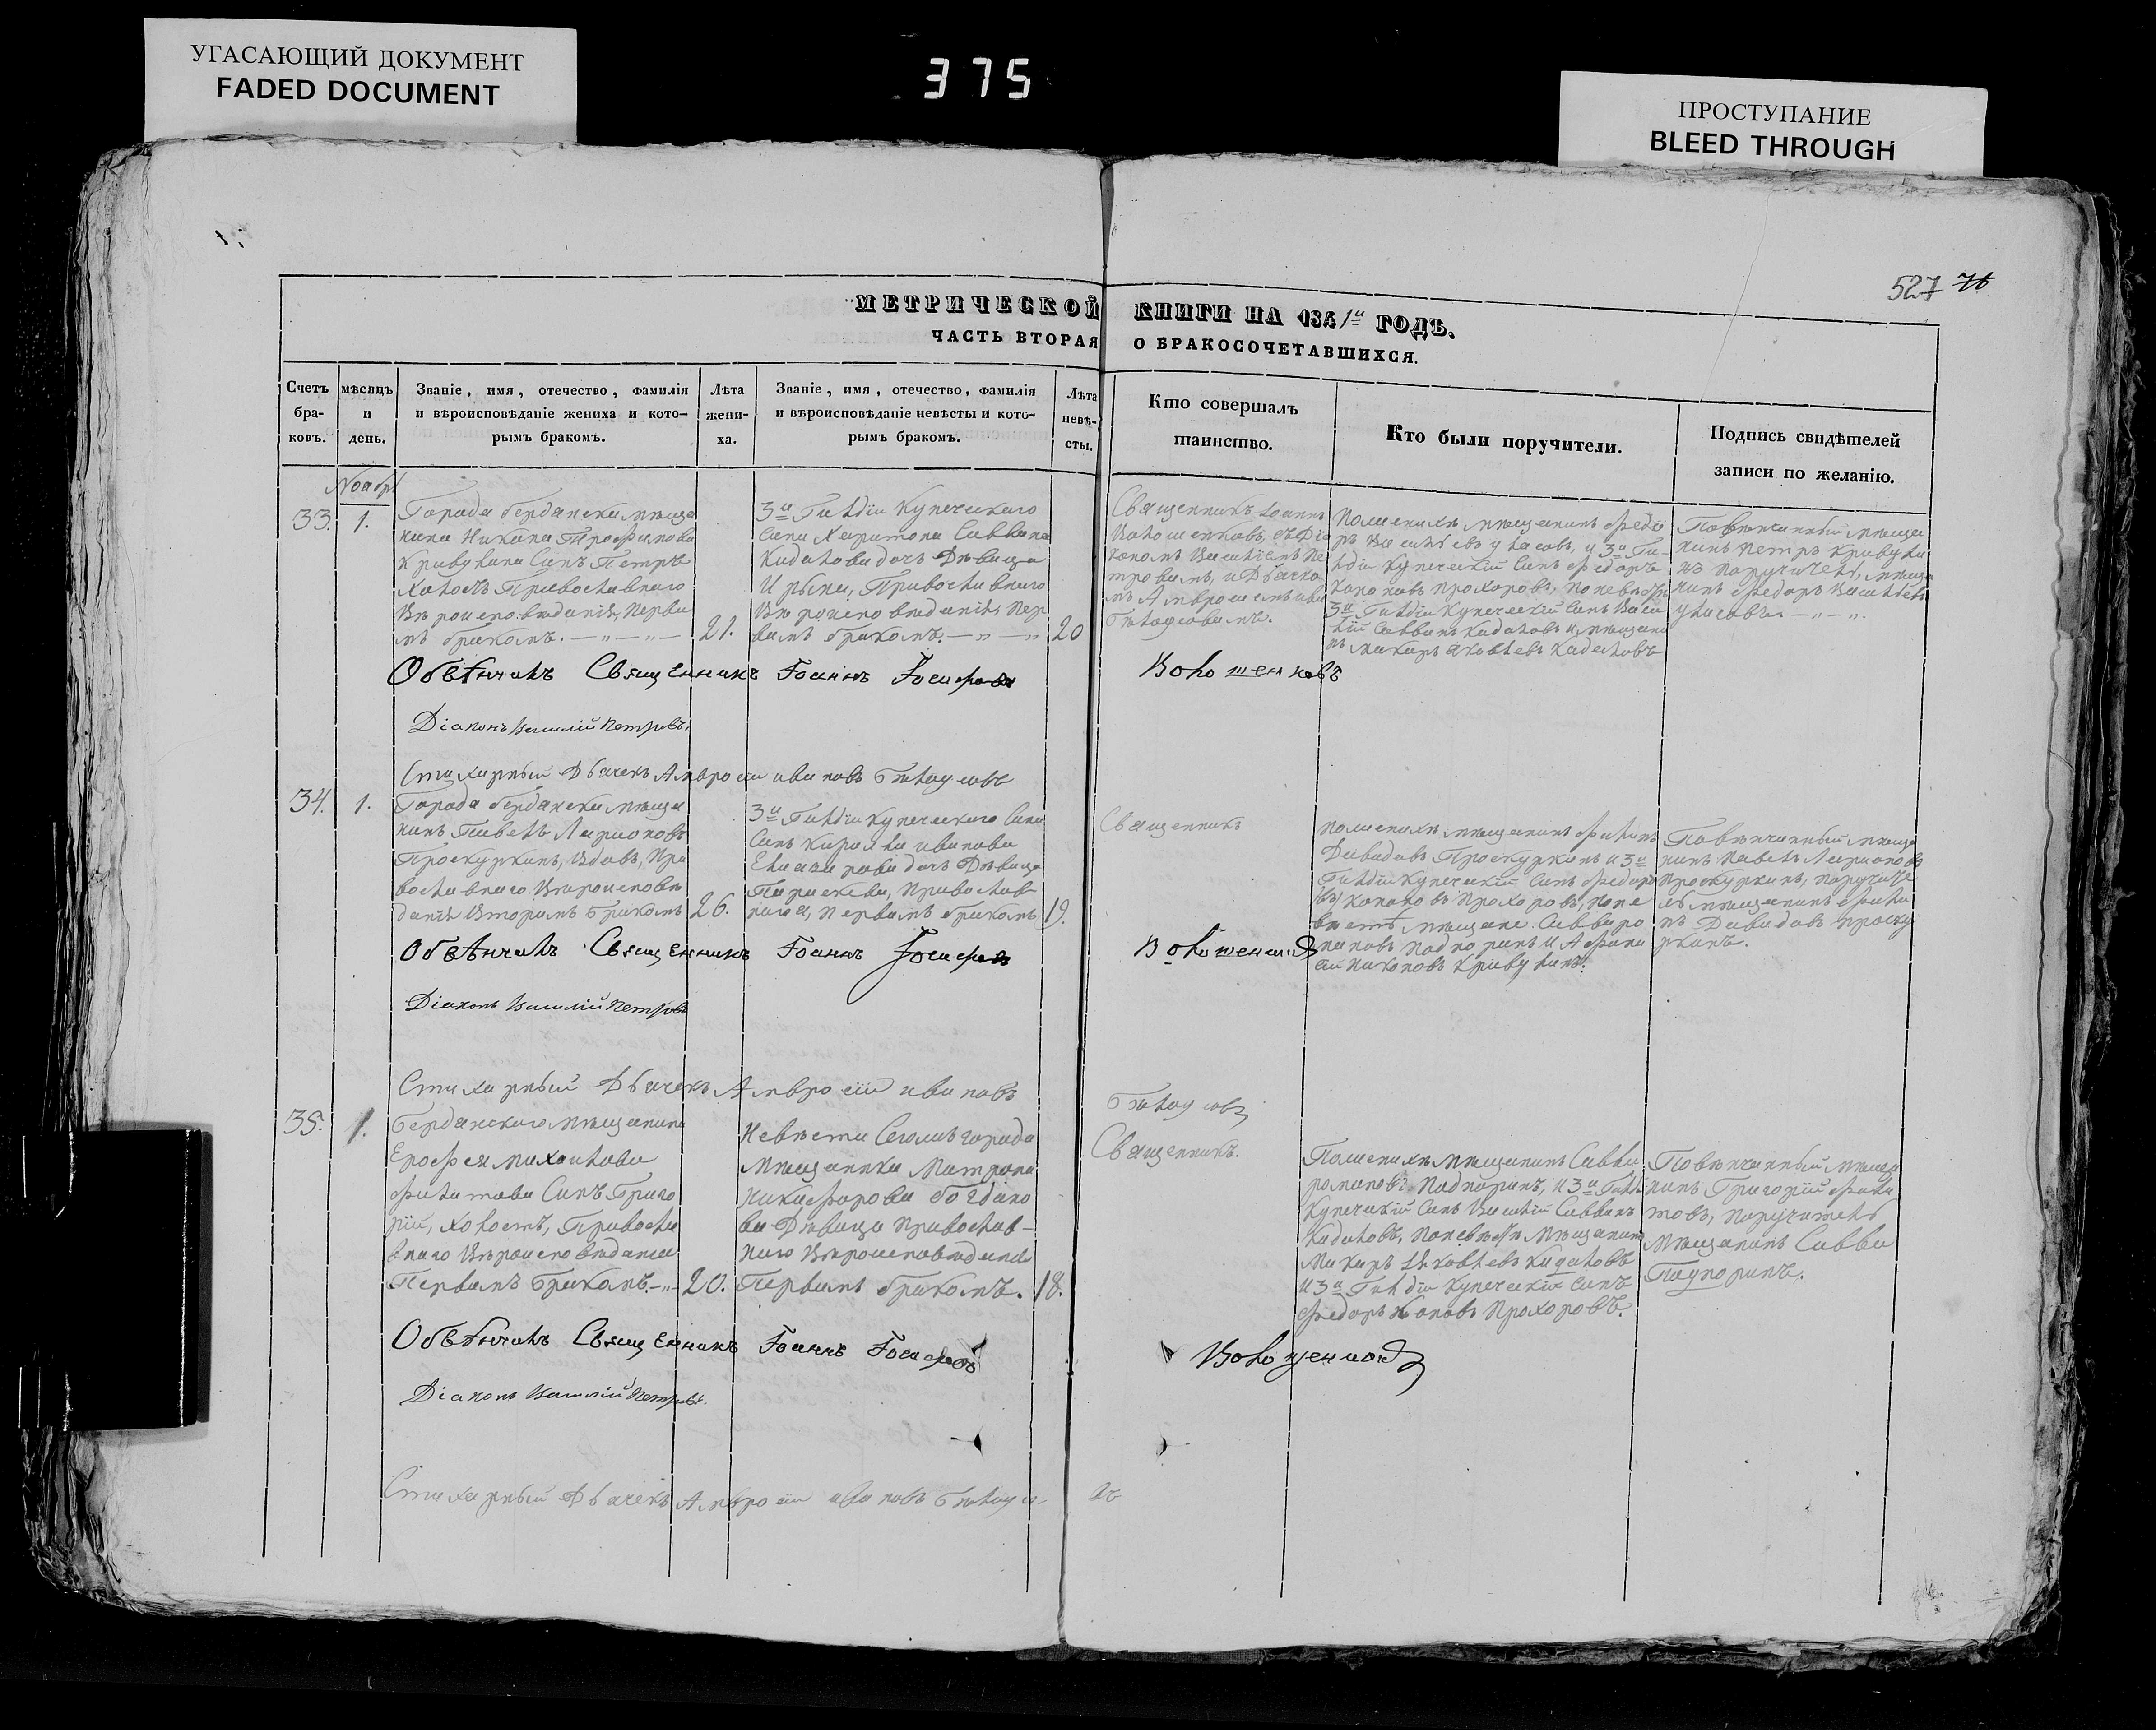 УГАСАЮЩИЙ ДОКУМЕНТ
FADED DOCUMENT
375
ПРОСТУПАНИЕ
BLEED THROUGH
527 76
МЕТРИЧЕСКОЙ КНИГИ НА 1841й ГОДЪ.
ЧАСТЬ ВТОРАЯ О БРАКОСОЧЕТАВШИХСЯ.
Счетъ бра-
ковъ.
мѣсяцъ
и
день.
Званіе, имя, отечество, фамилія
и вѣроисповѣданіе жениха и кото-
рымъ бракомъ.
Лѣта
жени-
ха.
Званіе, имя, отечество, фамилія
и вѣроисповѣданіе невѣсты и кото-
рымъ бракомъ.
Лѣта
невѣ-
сты.
Кто совершалъ
таинство.
Кто были поручители.
Подпись свидѣтелей
записи по желанію.
Ноябрь
33.
1.
Города бердянска меща
нина Никона Трофимова
Кривулина Сынъ Петръ
Холостъ Православнаго
Вероисповеданія, Первы
мъ бракомъ.
21.
3й Гильдіи Купеческаго
Сына Харитона Саввина
Кадалова дочь Девица
Ирына, Православнаго
Вероисповеданія, Пер
вымъ бракомъ.
20
Священникъ Іоаннъ
Волошенковъ, съ Діа
кономъ Васильемъ Пе
тровымъ, и Дьячко
мъ Амвросіемъ ива
Белоусовымъ.
По женихе мещанинъ Федо
ръ Васильевъ Уласовъ, и 3й Ги-
льдіи Купеческій Сынъ Федоръ
Кононовъ Прохоровъ, по невесте
3й Гильдіи Купеческій Сынъ Васи
лій Саввинъ Кадаловъ и мещани
нъ Макаръ Яковлевъ Кадаловъ
Повенчанный меща
нинъ Петръ Кривули
нъ поручитель, меща
нинъ Федоръ Васильевъ
Уласовъ.
Обвѣнчалъ Священникъ Іоаннъ Іосифовъ Волошенковъ
Діаконъ Василій Петровъ.
Стихарный Дьячекъ Амвросій ивановъ Белоусовъ
34.
1.
Города бердянска меща
нинъ Павелъ Ларіоновъ
Проскуркинъ, Вдовъ, Пра
вославнаго Вероисповѣ
данія Вторымъ бракомъ
26.
3й Гильдіи Купеческаго Сына
Сынъ Кирилла иванова
Елисарова дочь Девица
Параскева, Православ
наго, Первымъ бракомъ
19.
Священникъ
По женихе мещанинъ Филипъ
Давидовъ Проскуркинъ и 3й
Гильдіи Купеческій Сынъ Федоръ
Кононовъ Прохоровъ, по не
весте мещане Савва Ро
мановъ Подпоринъ и Афана
сій Никоновъ Кривулинъ.
Повенчанный меща
нинъ Павелъ Ларіоновъ
Проскуркинъ, поручите
ль мещанинъ Фили
пъ Давидовъ Проску
ркинъ.
Обвѣнчалъ Священникъ Іоаннъ Іосифовъ Волошенковъ
Діаконъ Василій Петровъ
Стихарный Дьячекъ Амвросій ивановъ Белоусовъ
35.
1.
Бердянскаго мещанина
Ерофея михайлова
Филатова Сынъ Григо
рій, холостъ, Правосла
внаго Вероисповеданія
Первымъ бракомъ.
20.
Невеста Сего же города
Мещанка Матрона
Никифорова богдано
ва Девица Православ-
наго Вероисповеданія
Первымъ бракомъ.
18.
Священникъ.
По женихе мещанинъ Савва
Романовъ Подпоринъ, и 3й Гильд
Купеческій Сынъ Василій Саввинъ
Кадаловъ, по невесте Мещанинъ
Макаръ Яковлевъ Кадаловъ
и 3й Гильдіи Купеческій Сынъ
Федоръ Кононовъ Прохоровъ.
Повенчанный меща
нинъ Григорій Фила
товъ, поручитель
мещанинъ Савва
Подпоринъ.
Обвѣнчалъ Священникъ Іоаннъ Іосифовъ Волошенковъ
Діаконъ Василій Петровъ.
Стихарный Дьячекъ Амвросій ивановъ Белоусо-
въ